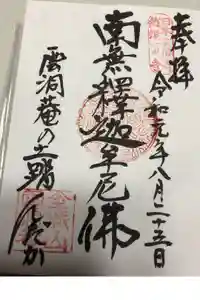 奉拝
令和元年八月二十五日
南無釋迦牟尼佛
雲洞庵の土踏んだか